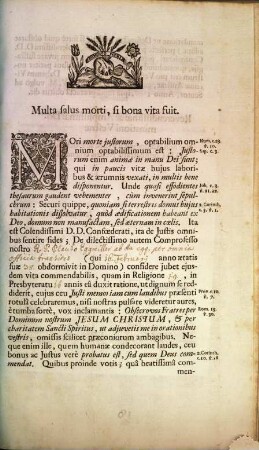 Multa salus morti, si bona vita fuit.
MOri morte justorum, optabilium om-
nium optabilissimum est; Justo-
rum enim animæ in manu Dei sunt;
qui in paucis vitæ hujus labori-
bus & ærumnis vexati, in multis bene
disponentur. Unde quasi effodientes
thesaurum gaudent vehementer, cùm invenerint sepul-
chrum: Securi quippe, quoniam si terrestris domus hujus
habitationis dissolvatur, quòd ædificationem habeant ex
Deo, domum non manufactam, sed æternam in cœlis. Ita
est Colendissimi D.D. Confœderati, ita de Justis omni-
bus sentire fides; De dilectissimo autem Comprofesso
nostro
qui
anno ætatis
suæ obdormivit in Domino) considere jubet ejus-
dem vita commendabilis, quam in Religione
Presbyteratu annis sù duxit ratione, ut dignum se red-
diderit, cujus ceu Justi memoriam cum laudibus præsenti
rotulâ celebraremus, nisi nostris pulsire videretur aures,
è tumba fortè, vox inclamantis: Obsecro vos Fratres per
Dominum nostrum JESUM CHRISTUM, & per
charitatem Sancti Spiritus, ut adjuvetis me in orationibus
vestris, omissis scilicet præconiorum ambagibus. Ne-
que enim ille, quem humanæ condecorant laudes, ceu
bonus ac Justus verè probatus est, sed quem Deus com-
mendat. Quibus proinde votis; quâ beatissimâ
commen-